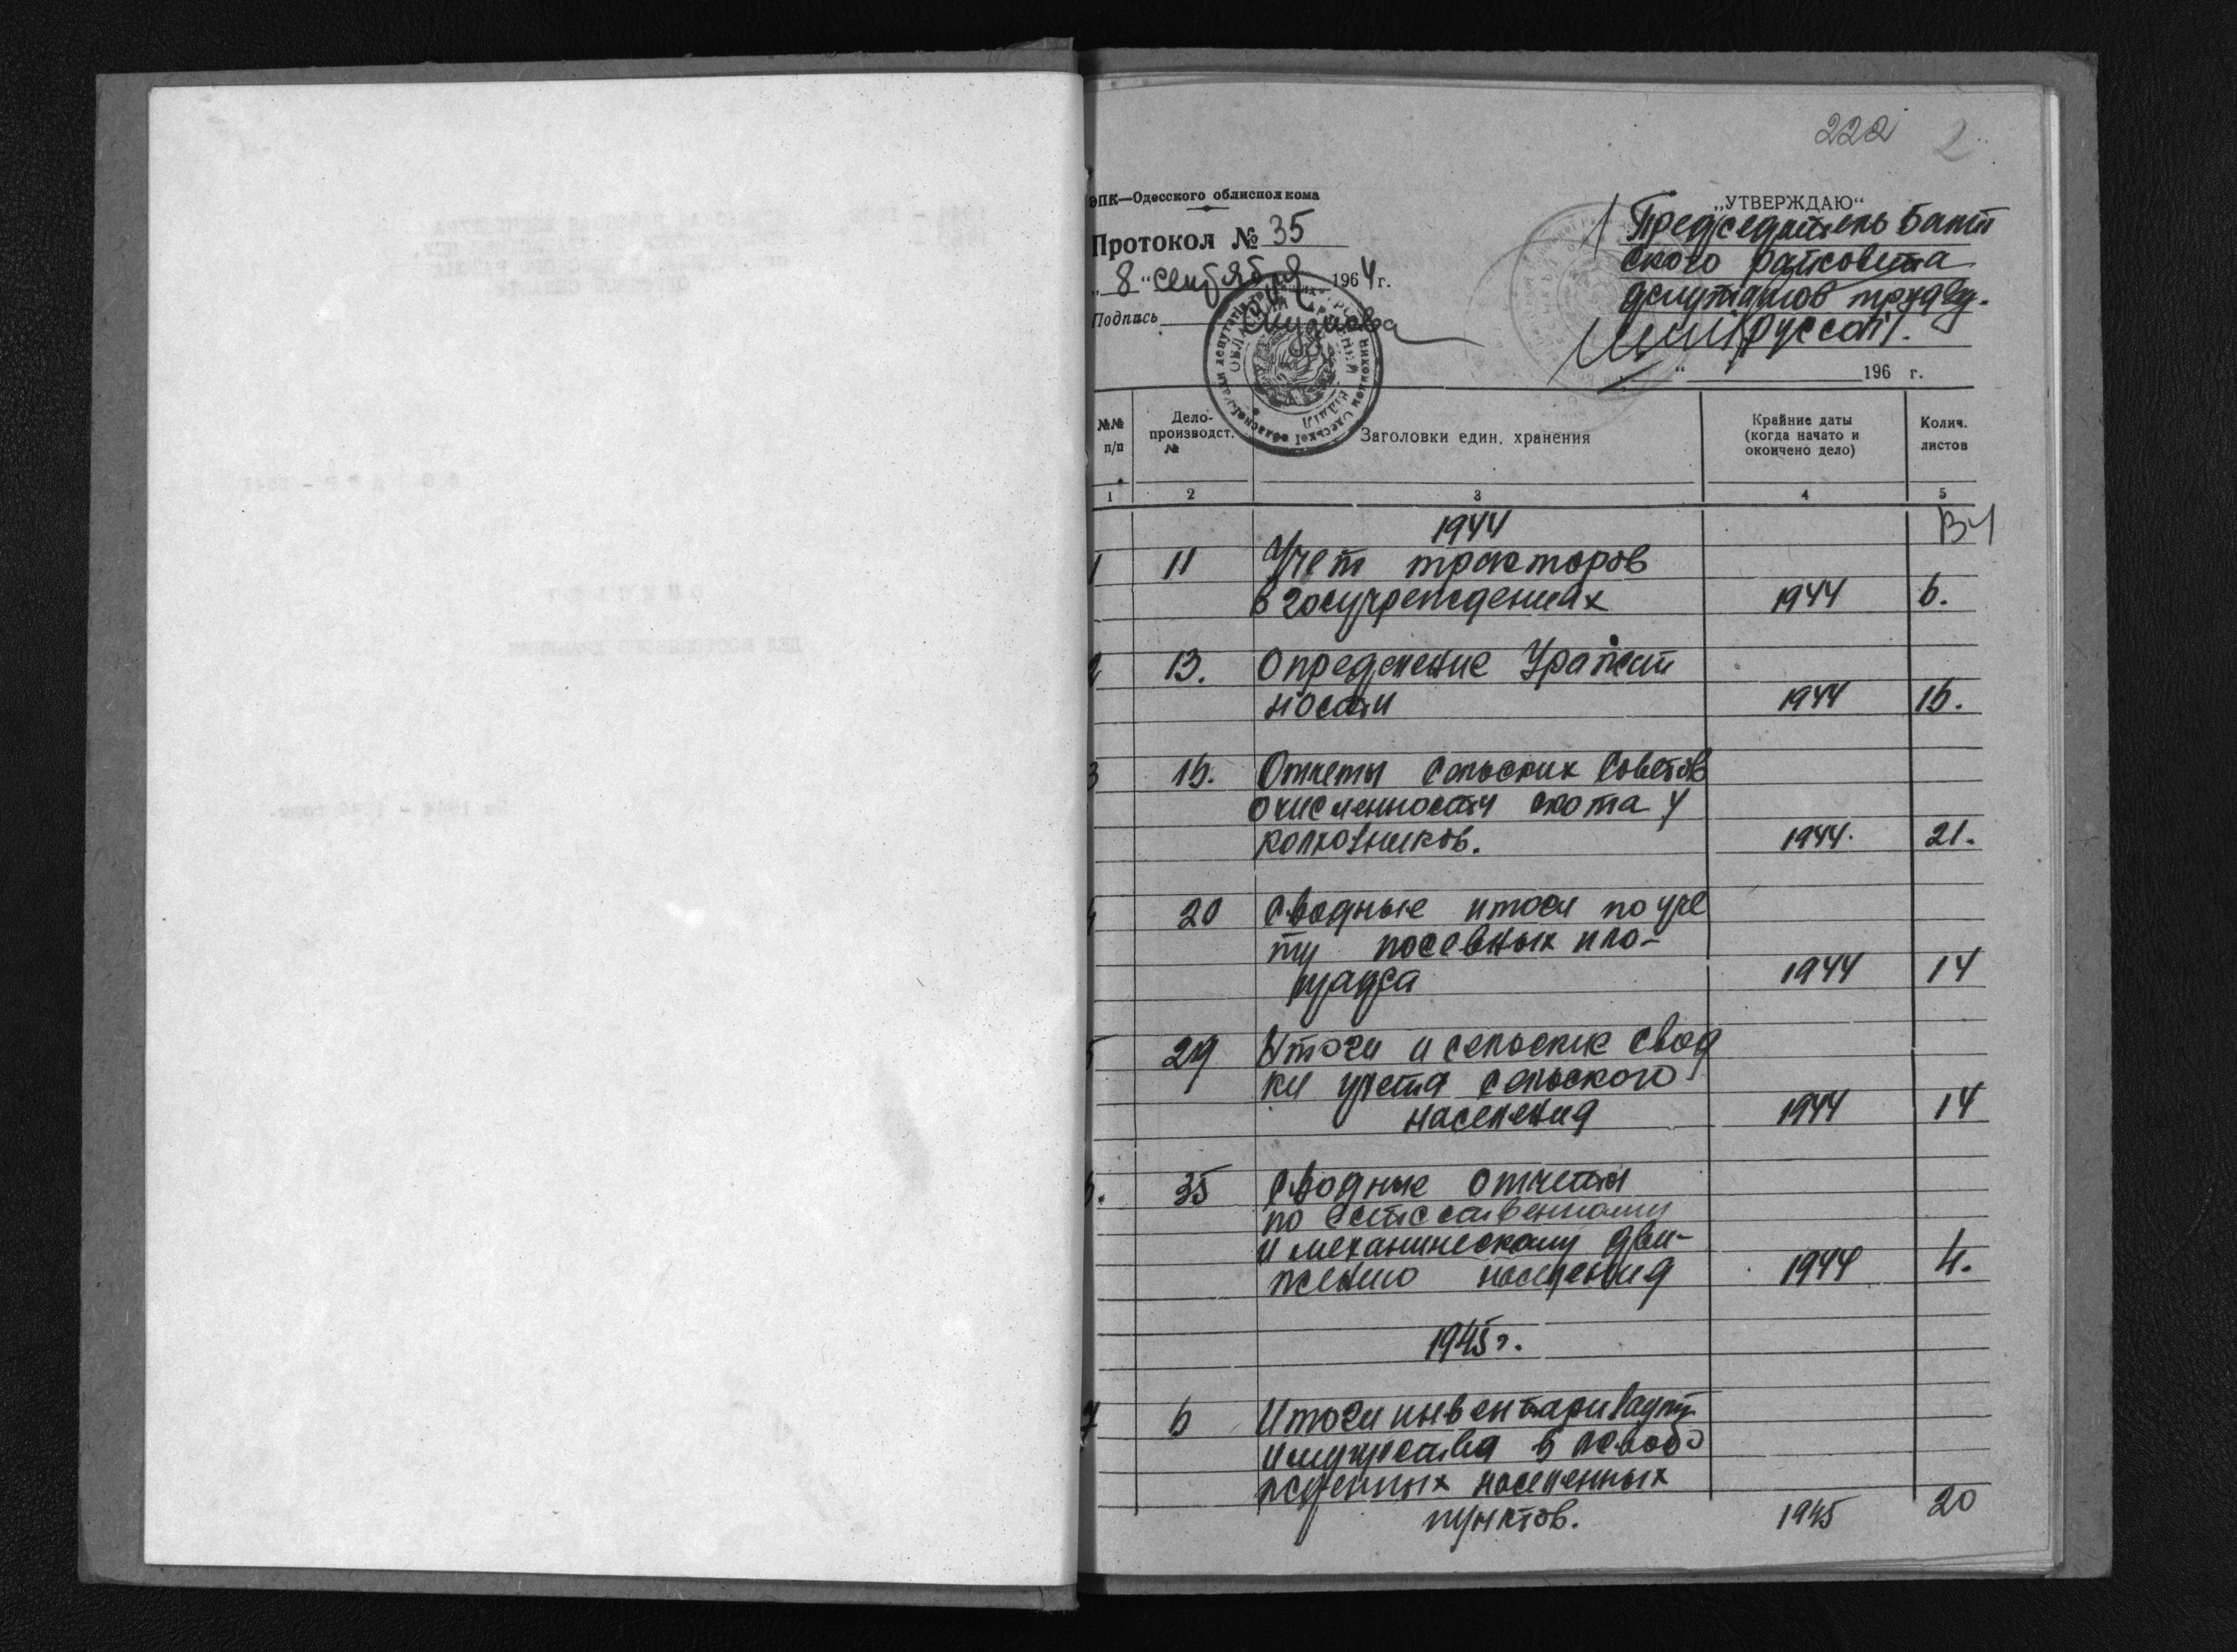 222 2
ЭПК—Одесского облисполкома
Протокол № 35
„8" сентября 1964 г.
Подпись
„УТВЕРЖДАЮ"
Председатель Балт
ского райсовета
депутатов трудящ.
196 г.
№№ п/п
Дело-производст. №
Заголовки един. хранения
Крайние даты (когда начато и окончено дело)
Колич. листов
1 2 3 4 5
1944
1 11 Учет тракторов
в госучреждениях 1944 6.
2 13. Определение Урожай
ности 1944 16.
3 16. Отчеты Сельских Советов
очисленности скота у
колхозников. 1944. 21.
20 Сводные итоги по уче
ту посевных пло-
щадса 1944 14
29 Итоги и сельские свод
ки учета сельского
населения 1944 14
6. 35 Сводные отчеты
по естественному
и механическому дви-
жению населения 1944 4.
1945 г.
7 6 Итоги
имущества в освобо
жденных населенных
пунктов. 1945 20